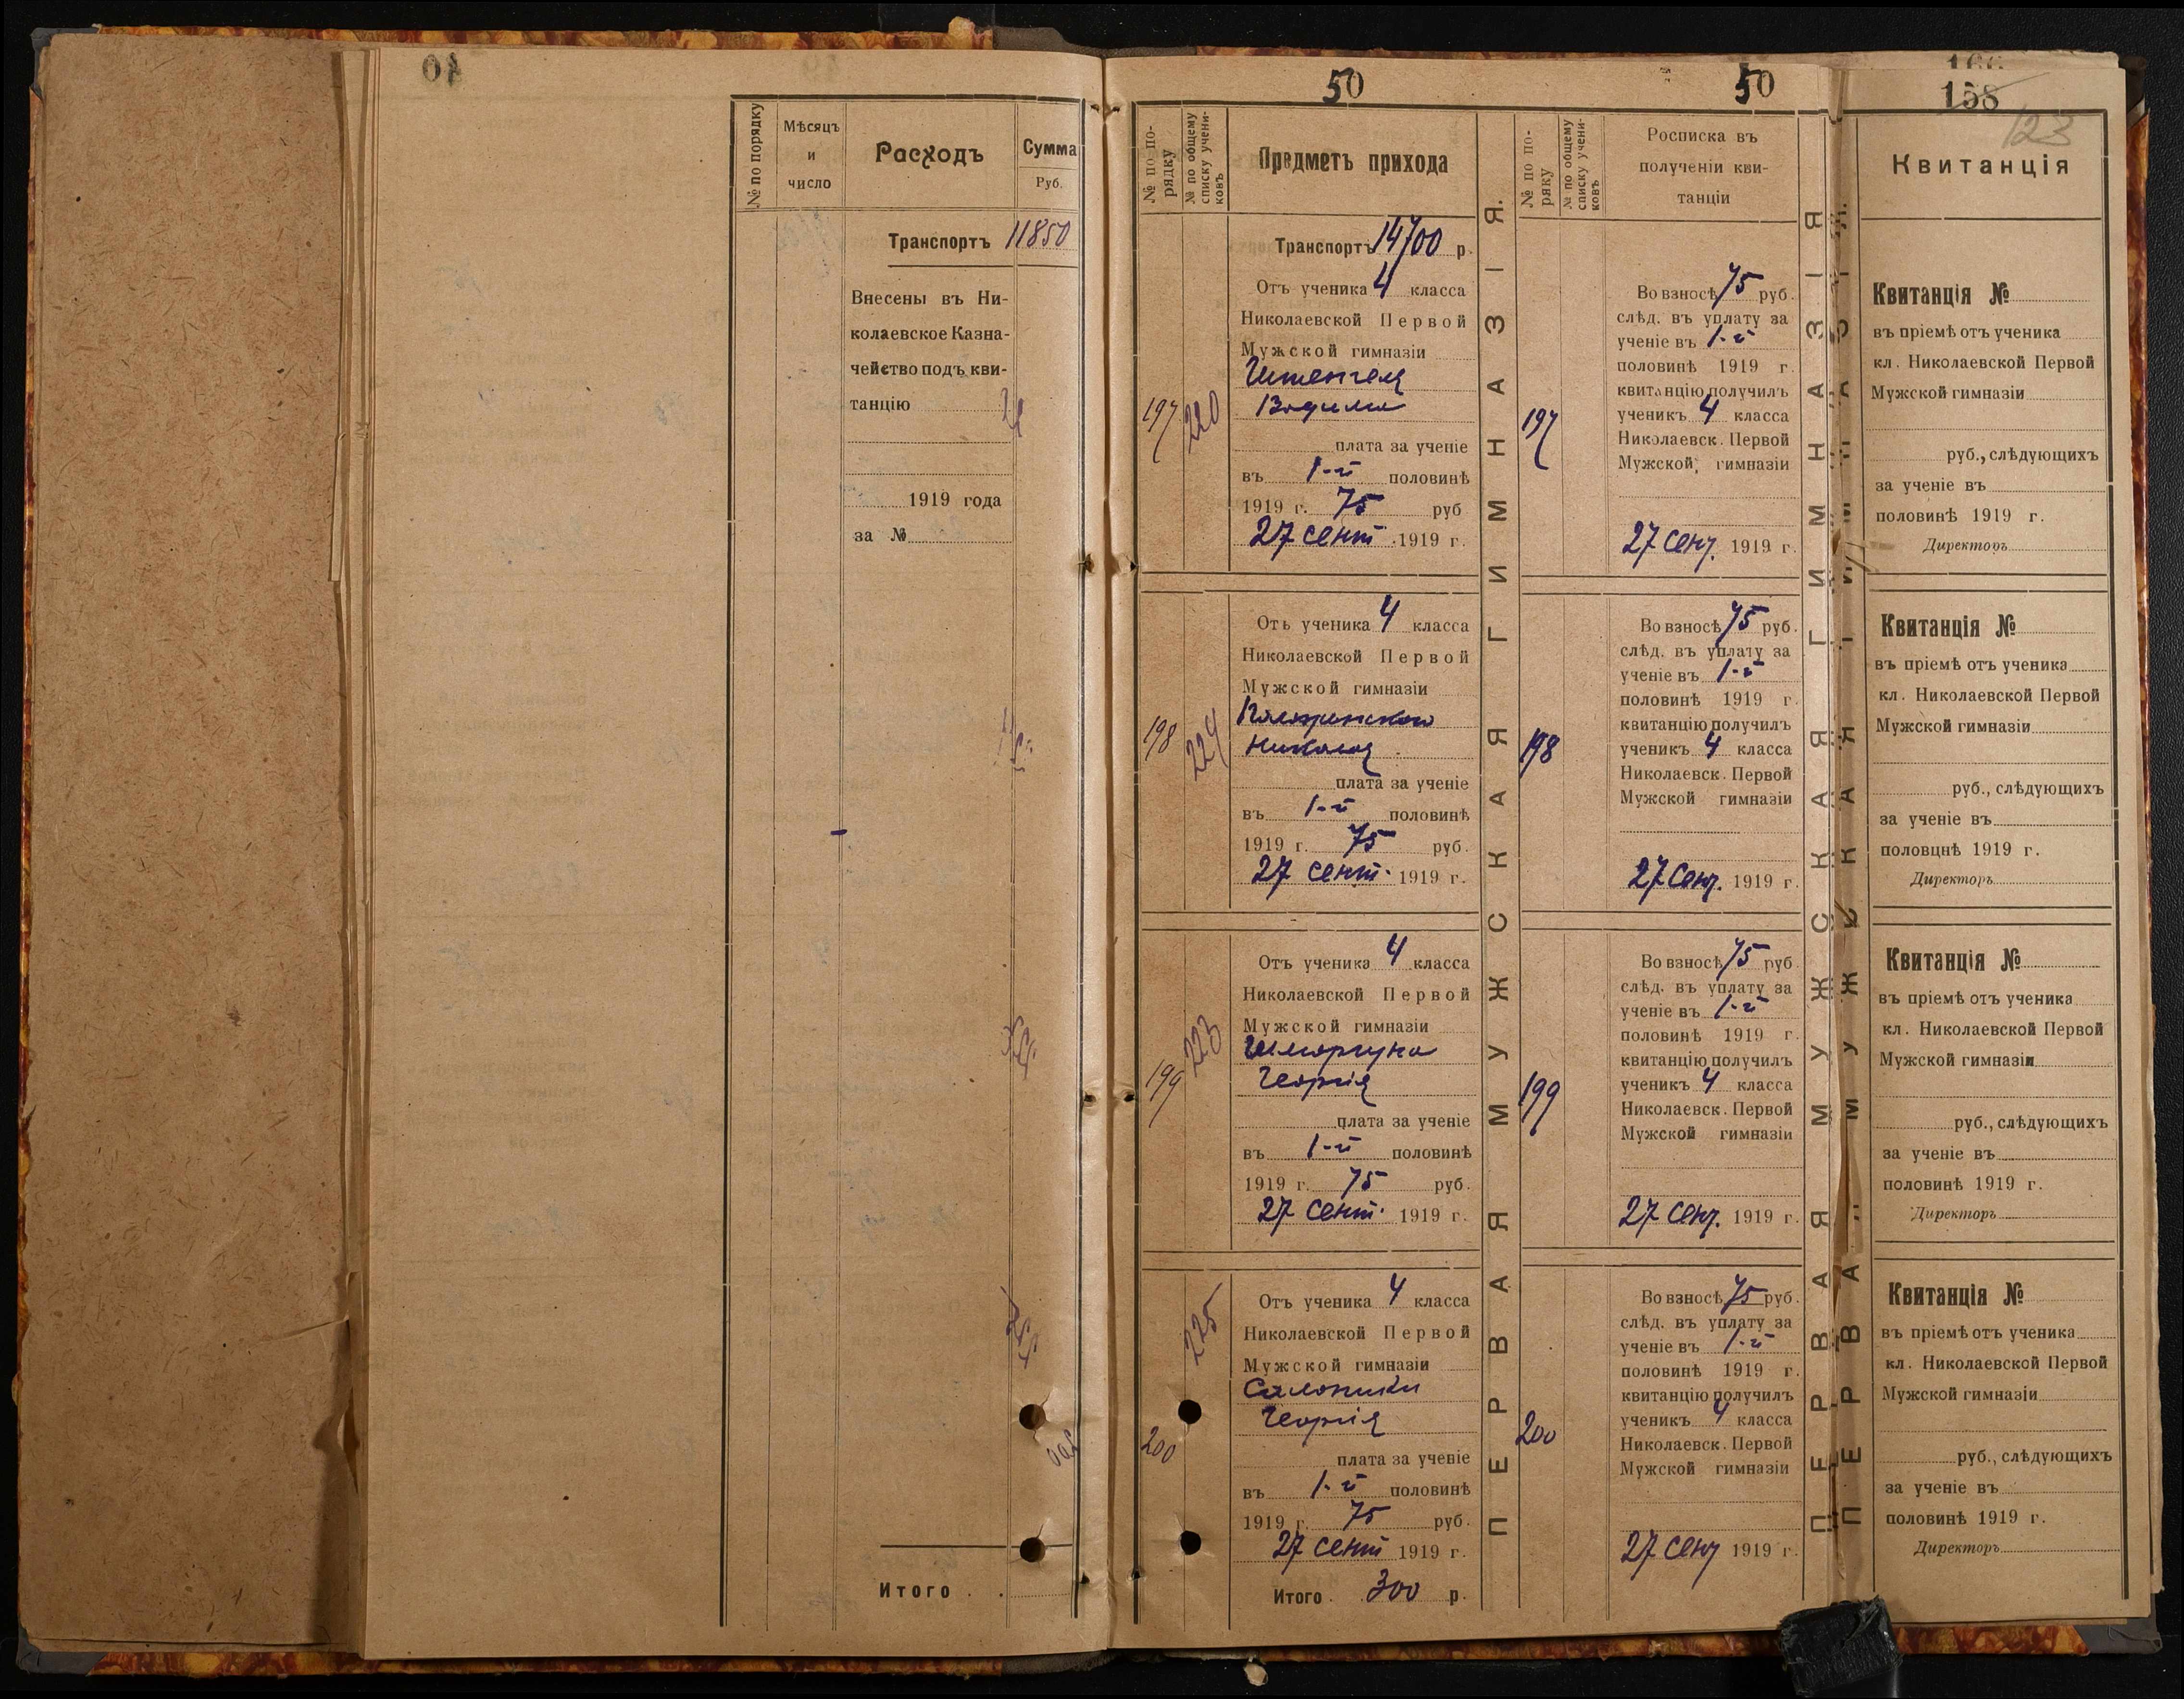 50
50
158
123
№ по порядку
Мѣсяцъ
и
число
Расходъ
Сумма
Руб.
Транспортъ 11850
Внесены въ Ни-
колаевское Казна-
чейство подъ кви-
танцію
1919 года
за №
Итого . .
№ по по-
рядку
№ по общему
списку учени-
ковъ
Предметъ прихода
Транспортъ 14700 р.
197
220
Отъ ученика 4 класса
Николаевской Первой
Мужской гимназіи
Штенгеля
Вадима
плата за ученіе
въ 1-й половинѣ
1919 г. 75 руб
27 сент 1919 г.
198
224
Отъ ученика 4 класса
Николаевской Первой
Мужской гимназіи
Николая
плата за ученіе
въ 1-й половинѣ
1919 г. 75 руб.
27 сент. 1919 г.
199
223
Отъ ученика 4 класса
Николаевской Первой
Мужской гимназіи
Шморгуна
Георгія
плата за ученіе
въ 1-й половинѣ
1919 г. 75 руб.
27 сент. 1919 г.
200
225
Отъ ученика 4 класса
Николаевской Первой
Мужской гимназіи
Салоники
Георгія
плата за ученіе
въ 1-й половинѣ
1919 г. 75 руб.
27 сент 1919 г.
Итого . 300 р.
ПЕРВАЯ МУЖСКАЯ ГИМНАЗІЯ.
№ по по-
ряку
№ по общему
списку учени-
ковъ
Росписка въ
полученіи кви-
танціи
197
Во взносѣ 75 руб.
слѣд. въ уплату за
ученіе въ 1-й
половинѣ 1919 г.
квитанцію получилъ
ученикъ 4 класса
Николаевск. Первой
Мужской гимназіи
27 сент. 1919 г.
198
Во взносѣ 75 руб.
слѣд. въ уплату за
ученіе въ 1-й
половинѣ 1919 г.
квитанцію получилъ
ученикъ 4 класса
Николаевск. Первой
Мужской гимназіи
27 Сент. 1919 г.
199
Во взносѣ 75 руб
слѣд. въ уплату за
ученіе въ 1-й
половинѣ 1919 г.
квитанцію получилъ
ученикъ 4 класса
Николаевск. Первой
Мужской гимназіи
27 Сент. 1919 г.
200
Во взносѣ 75 руб.
слѣд. въ уплату за
ученіе въ 1-й
половинѣ 1919 г.
квитанцію получилъ
ученикъ 4 класса
Николаевск. Первой
Мужской гимназіи
27 сент 1919 г.
ПЕРВАЯ МУЖСКАЯ ГИМНАЗІЯ
Квитанція
Квитанція №
въ пріемѣ отъ ученика
кл. Николаевской Первой
Мужской гимназіи
руб., слѣдующихъ
за ученіе въ
половинѣ 1919 г.
Директоръ
Квитанція №
въ пріемѣ отъ ученика
кл. Николаевской Первой
Мужской гимназіи
руб., слѣдующихъ
за ученіе въ
половцнѣ 1919 г.
Директоръ
Квитанція №
въ пріемѣ отъ ученика
кл. Николаевской Первой
Мужской гимназіи
руб., слѣдующихъ
за ученіе въ
половинѣ 1919 г.
Директоръ
Квитанція №
въ пріемѣ отъ ученика
кл. Николаевской Первой
Мужской гимназіи
руб., слѣдующихъ
за ученіе въ
половинѣ 1919 г.
Директоръ